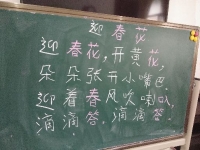 迎春花
迎春花,开黄花,
朵朵张开小嘴巴.
迎着春风吹喇叭,
滴滴答.滴滴答.